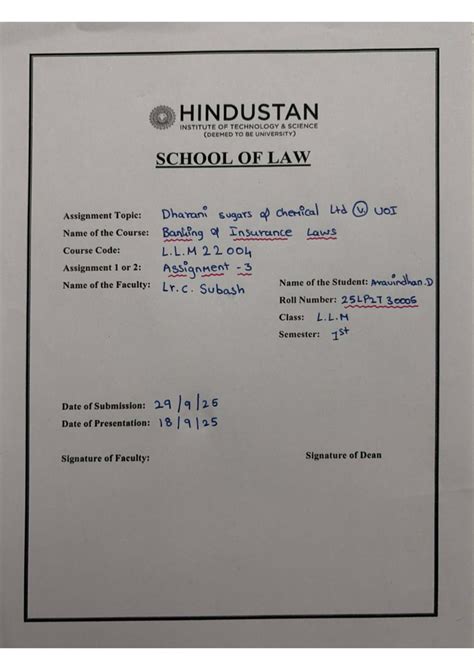 HINDUSTAN
INSTITUTE OF TECHNOLOGY & SCIENCE
(DEEMED TO BE UNIVERSITY)
SCHOOL OF LAW
Assignment Topic: Dharani sugars & Chemical Ltd v. UOI
Name of the Course: Banking & Insurance Laws
Course Code: L.L.M 22004
Assignment 1 or 2: Assignment - 3
Name of the Faculty: Lr.C. Subash
Name of the Student: Aravindhan.D
Roll Number: 25LP2T30006
Class: L.L.M
Semester: 1st
Date of Submission: 29/9/25
Date of Presentation: 18/9/25
Signature of Faculty:
Signature of Dean